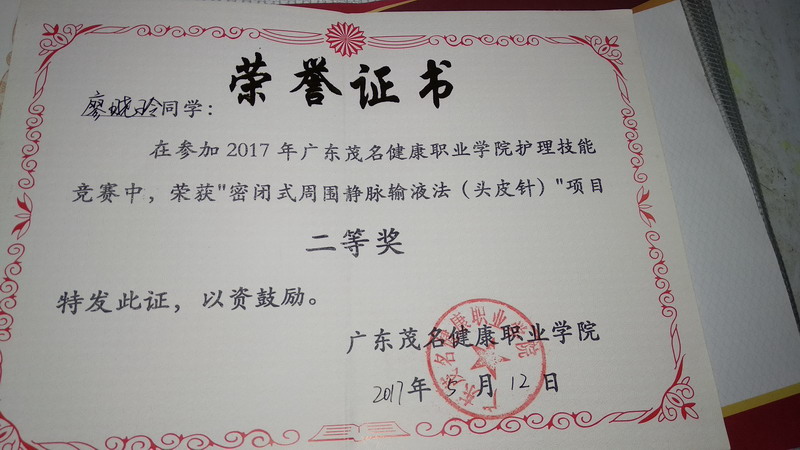 荣誉证书
廖晓玲同学：
在参加2017年广东茂名健康职业学院护理技能
竞赛中，荣获"密闭式周围静脉输液法（头皮针）"项目
二等奖
特发此证，以资鼓励。
广东茂名健康职业学院
2017年5月12日
广东茂名健康职业学院